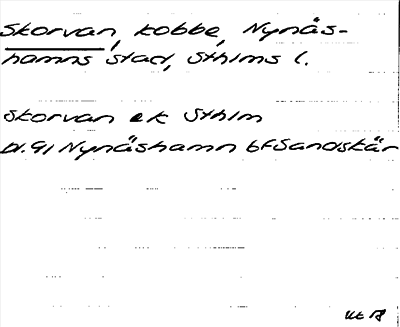 Skorvan, kobbe, Nynäs-
hamns stad, Sthlms l.
Skorvan ek Sthlm
bl. 91 Nynäshamn 6f Sandskär